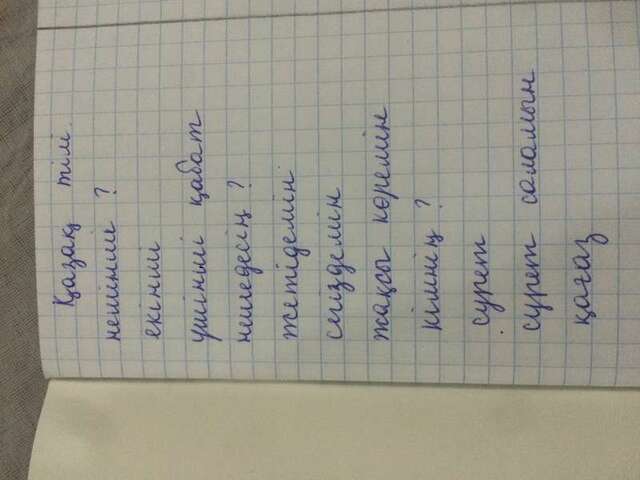 Қазақ тілі
нешінші ?
екінші
үшінші қабат
нешедесің ?
жетідемін
сегіздемін
жақсы көремін
кімнің ?
сурет
сурет саламын
қағаз